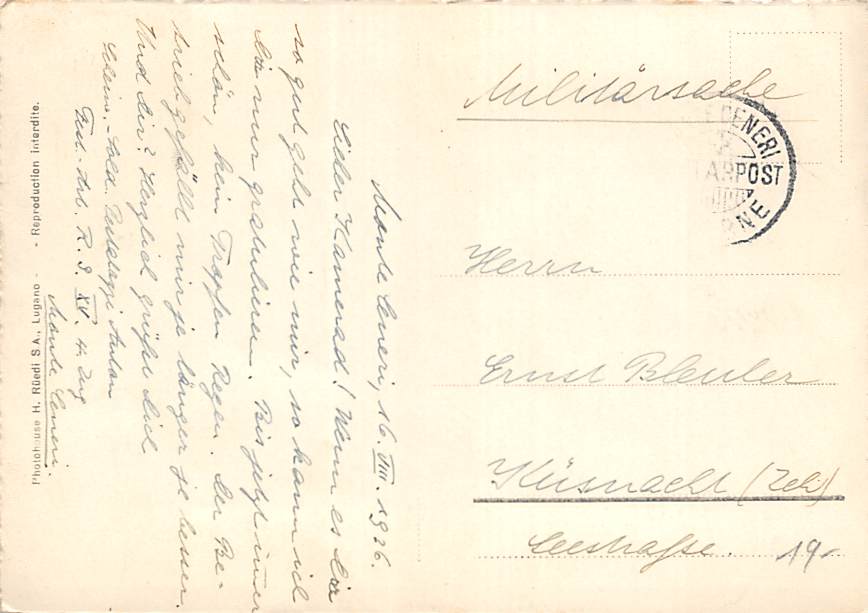 Monte Ceneri, 16. VIII. 1926.
Lieber Kamerad! Wenn es Dir
so gut geht wie mir, so kann ich
Dir nur gratulieren. Bis jetzt immer
schön, kein Tropfen Regen. Der Be-
trieb gefällt mir je länger je besser.
Und dir? Herzlich grüsst dich
Anton
Fest.-Art. R. S. XV. 4. Zug
Monte Ceneri.
Photohouse H. Rüedi S.A., Lugano - - Reproduction interdite.
Militärsache
CENERI
POST
Herrn
Ernst Bleuler
Küsnacht (Zch)
Seestrasse. 191